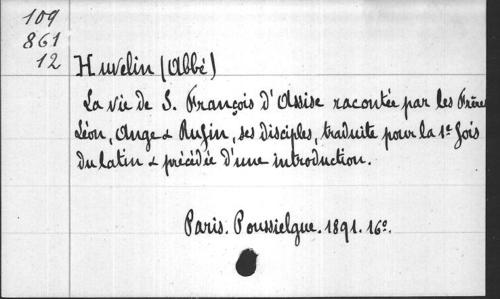 109
861
12
Huvelin (Abbé)
La vie de S. François d'Assise racontée par les Frères
Léon, Ange & Rufin, ses disciples, traduite pour la 1e fois
du latin & précédée d'une introduction.
Paris. Poussielgue. 1891. 16o.